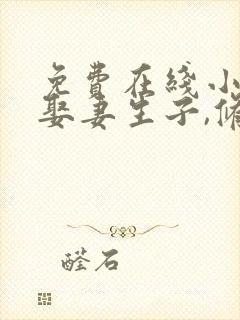 免费在线小
娶妻生子,修
醛石